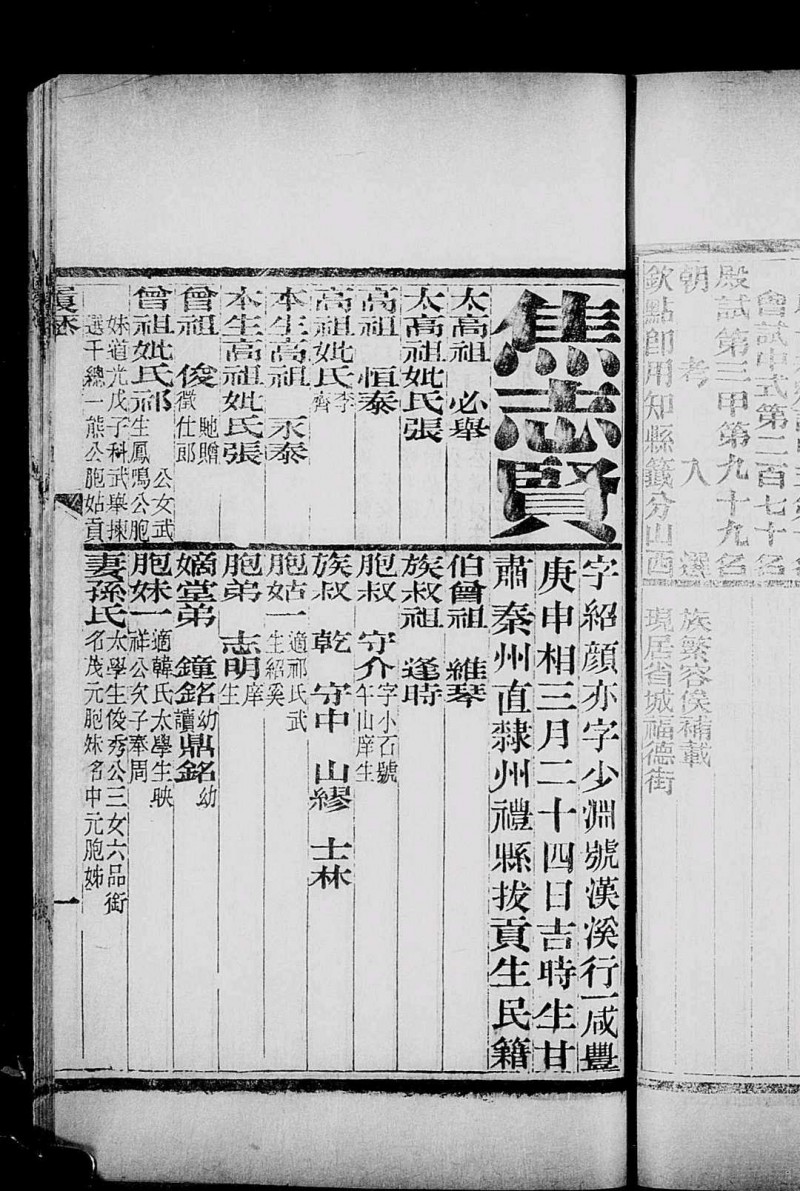 會試中式第二百七十名
殿試第三甲第九十九名
朝考入選
欽點即用知縣籤分山西
族繁容俟補載
現居省城福德街
焦志賢
字紹顏亦字少淵號漢溪行一咸豐
庚申相三月二十四日吉時生甘
肅秦州直隸州禮縣拔貢生民籍
太高祖 必舉
太高祖妣氏張
高祖 恒泰
高祖妣氏李
齊
本生高祖 永泰
本生高祖妣氏張
曾祖 俊馳贈
徵仕郎
曾祖妣氏祁公女武
生鳳鳴公胞
妹道光戊子科武舉揀
選千總一熊公胞姑貢
伯曾祖 維琴
族叔祖 逢時
胞叔 守介字小石號
午山庠生
族叔 乾 守中 山繆 士林
胞姑一適祁氏武
生紹奚
胞弟 志明庠
生
嫡堂弟 鐘銘幼
讀鼎銘幼
胞妹一適韓氏太學生映
祥公次子奉周
妻孫氏太學生俊秀公三女六品銜
名茂元胞妹名中元胞姊
履歷
一